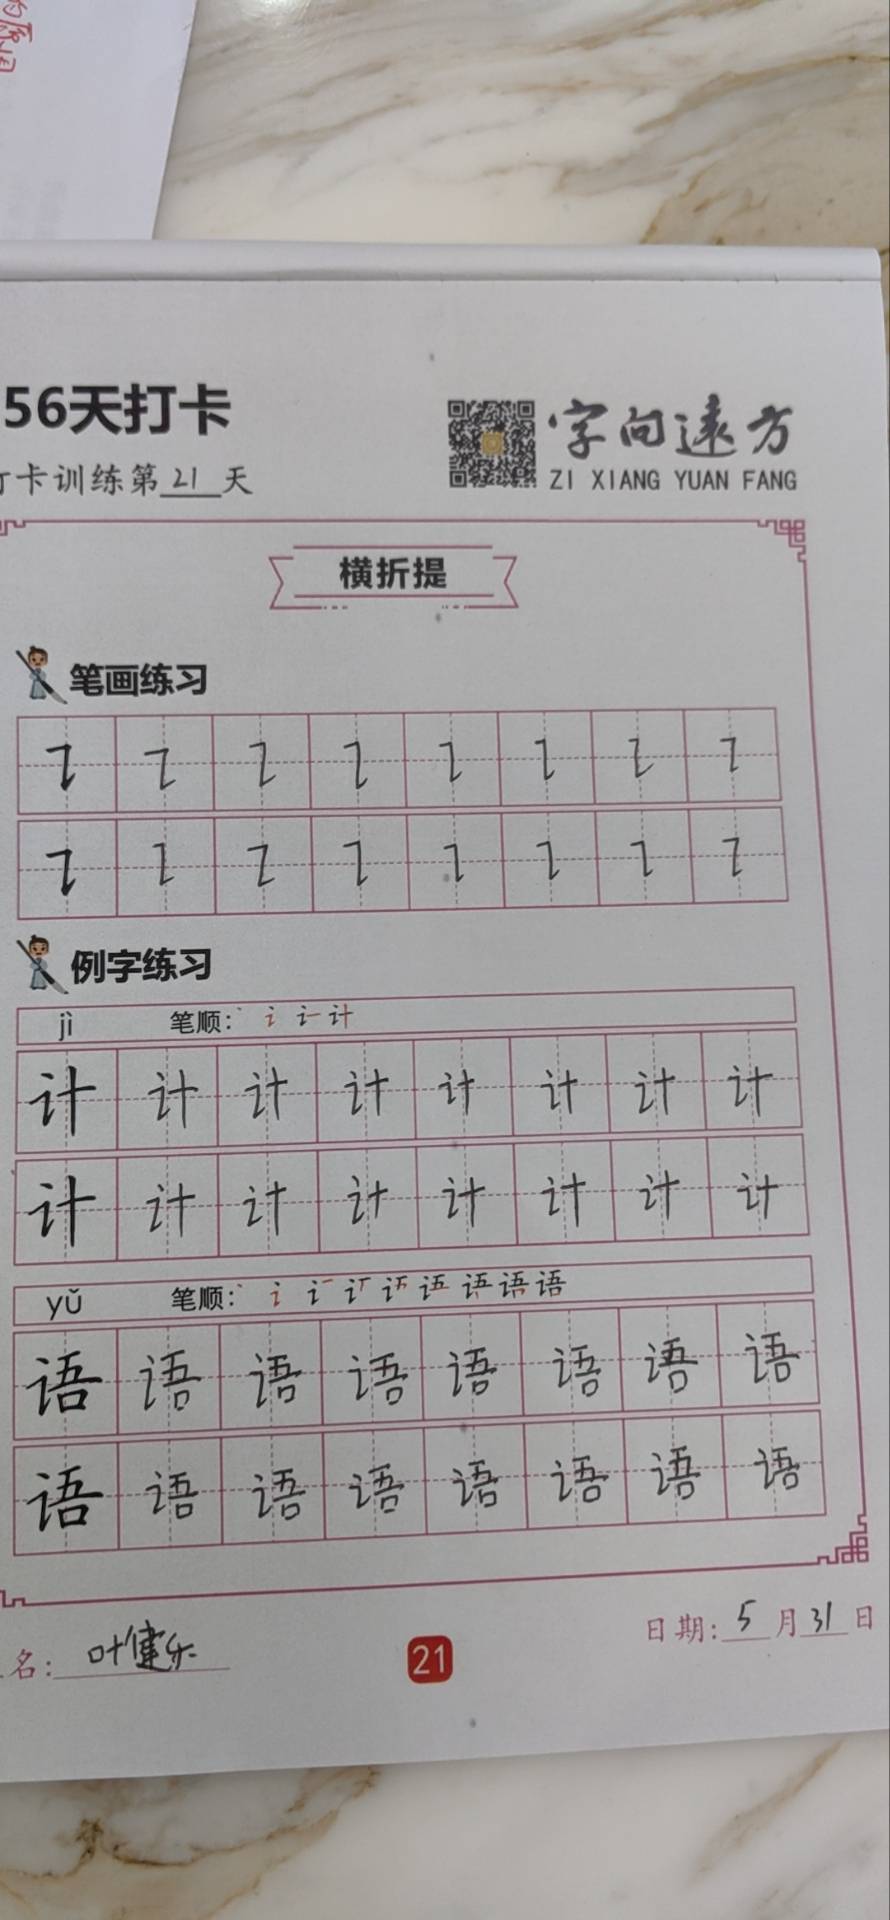 的原因
56天打卡
字向远方
打卡训练第21天
ZI XIANG YUAN FANG
横折提
笔画练习
例字练习
jì 笔顺:
计 计 计 计 计 计 计 计
计 计 计 计 计 计 计 计
yǔ 笔顺: 语
语 语 语 语 语 语 语 语
语 语 语 语 语 语 语 语
名: 叶健乐
21
日期: 5 月 31 日